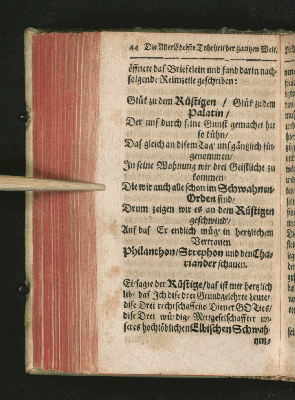 44 Die AllerEdelste Tohrheit der gantzen Welt.
öffnete das Briefelein und fand darin nach-
folgende Reimzeile geschriben:
Glük zu dem Rüstigen / Glük zu dem
Palatin /
Der uns durch seine Gunst gemachet hat
so kühn/
Das gleich an disem Tag' uns gäntzlich für-
genommen/
In seine Wohnung wir drei Geistliche zu
kommen/
Die wir auch alle schon im Schwahnen-
Orden sind/
Drum zeigen wir es an dem Rüstigen
geschwind/
Auf das Er endlich müg' in hertzlichem
Vertrauen
Philanthon/ Strephon und den Cha-
riander schauen.
Ei sagte der Rüstige/ das ist mir hertzlich
lib/ das Ich dise drei Grundgelehrte leute/
dise Drei rechtschaffene Diener GOTtes/
dise Drei würdige Mitgeselschafter un-
seres hochlöblichen Elbischen Schwah-
nen-